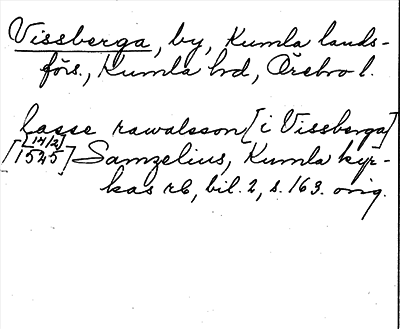 Vissberga, by, Kumla lands-
förs., Kumla hd, Örebro l.
lasse rawalsson [i Vissberga]
[14/2]
[1545] Samzelius, Kumla kyr-
kas rb, bil. 2, s. 163. orig.